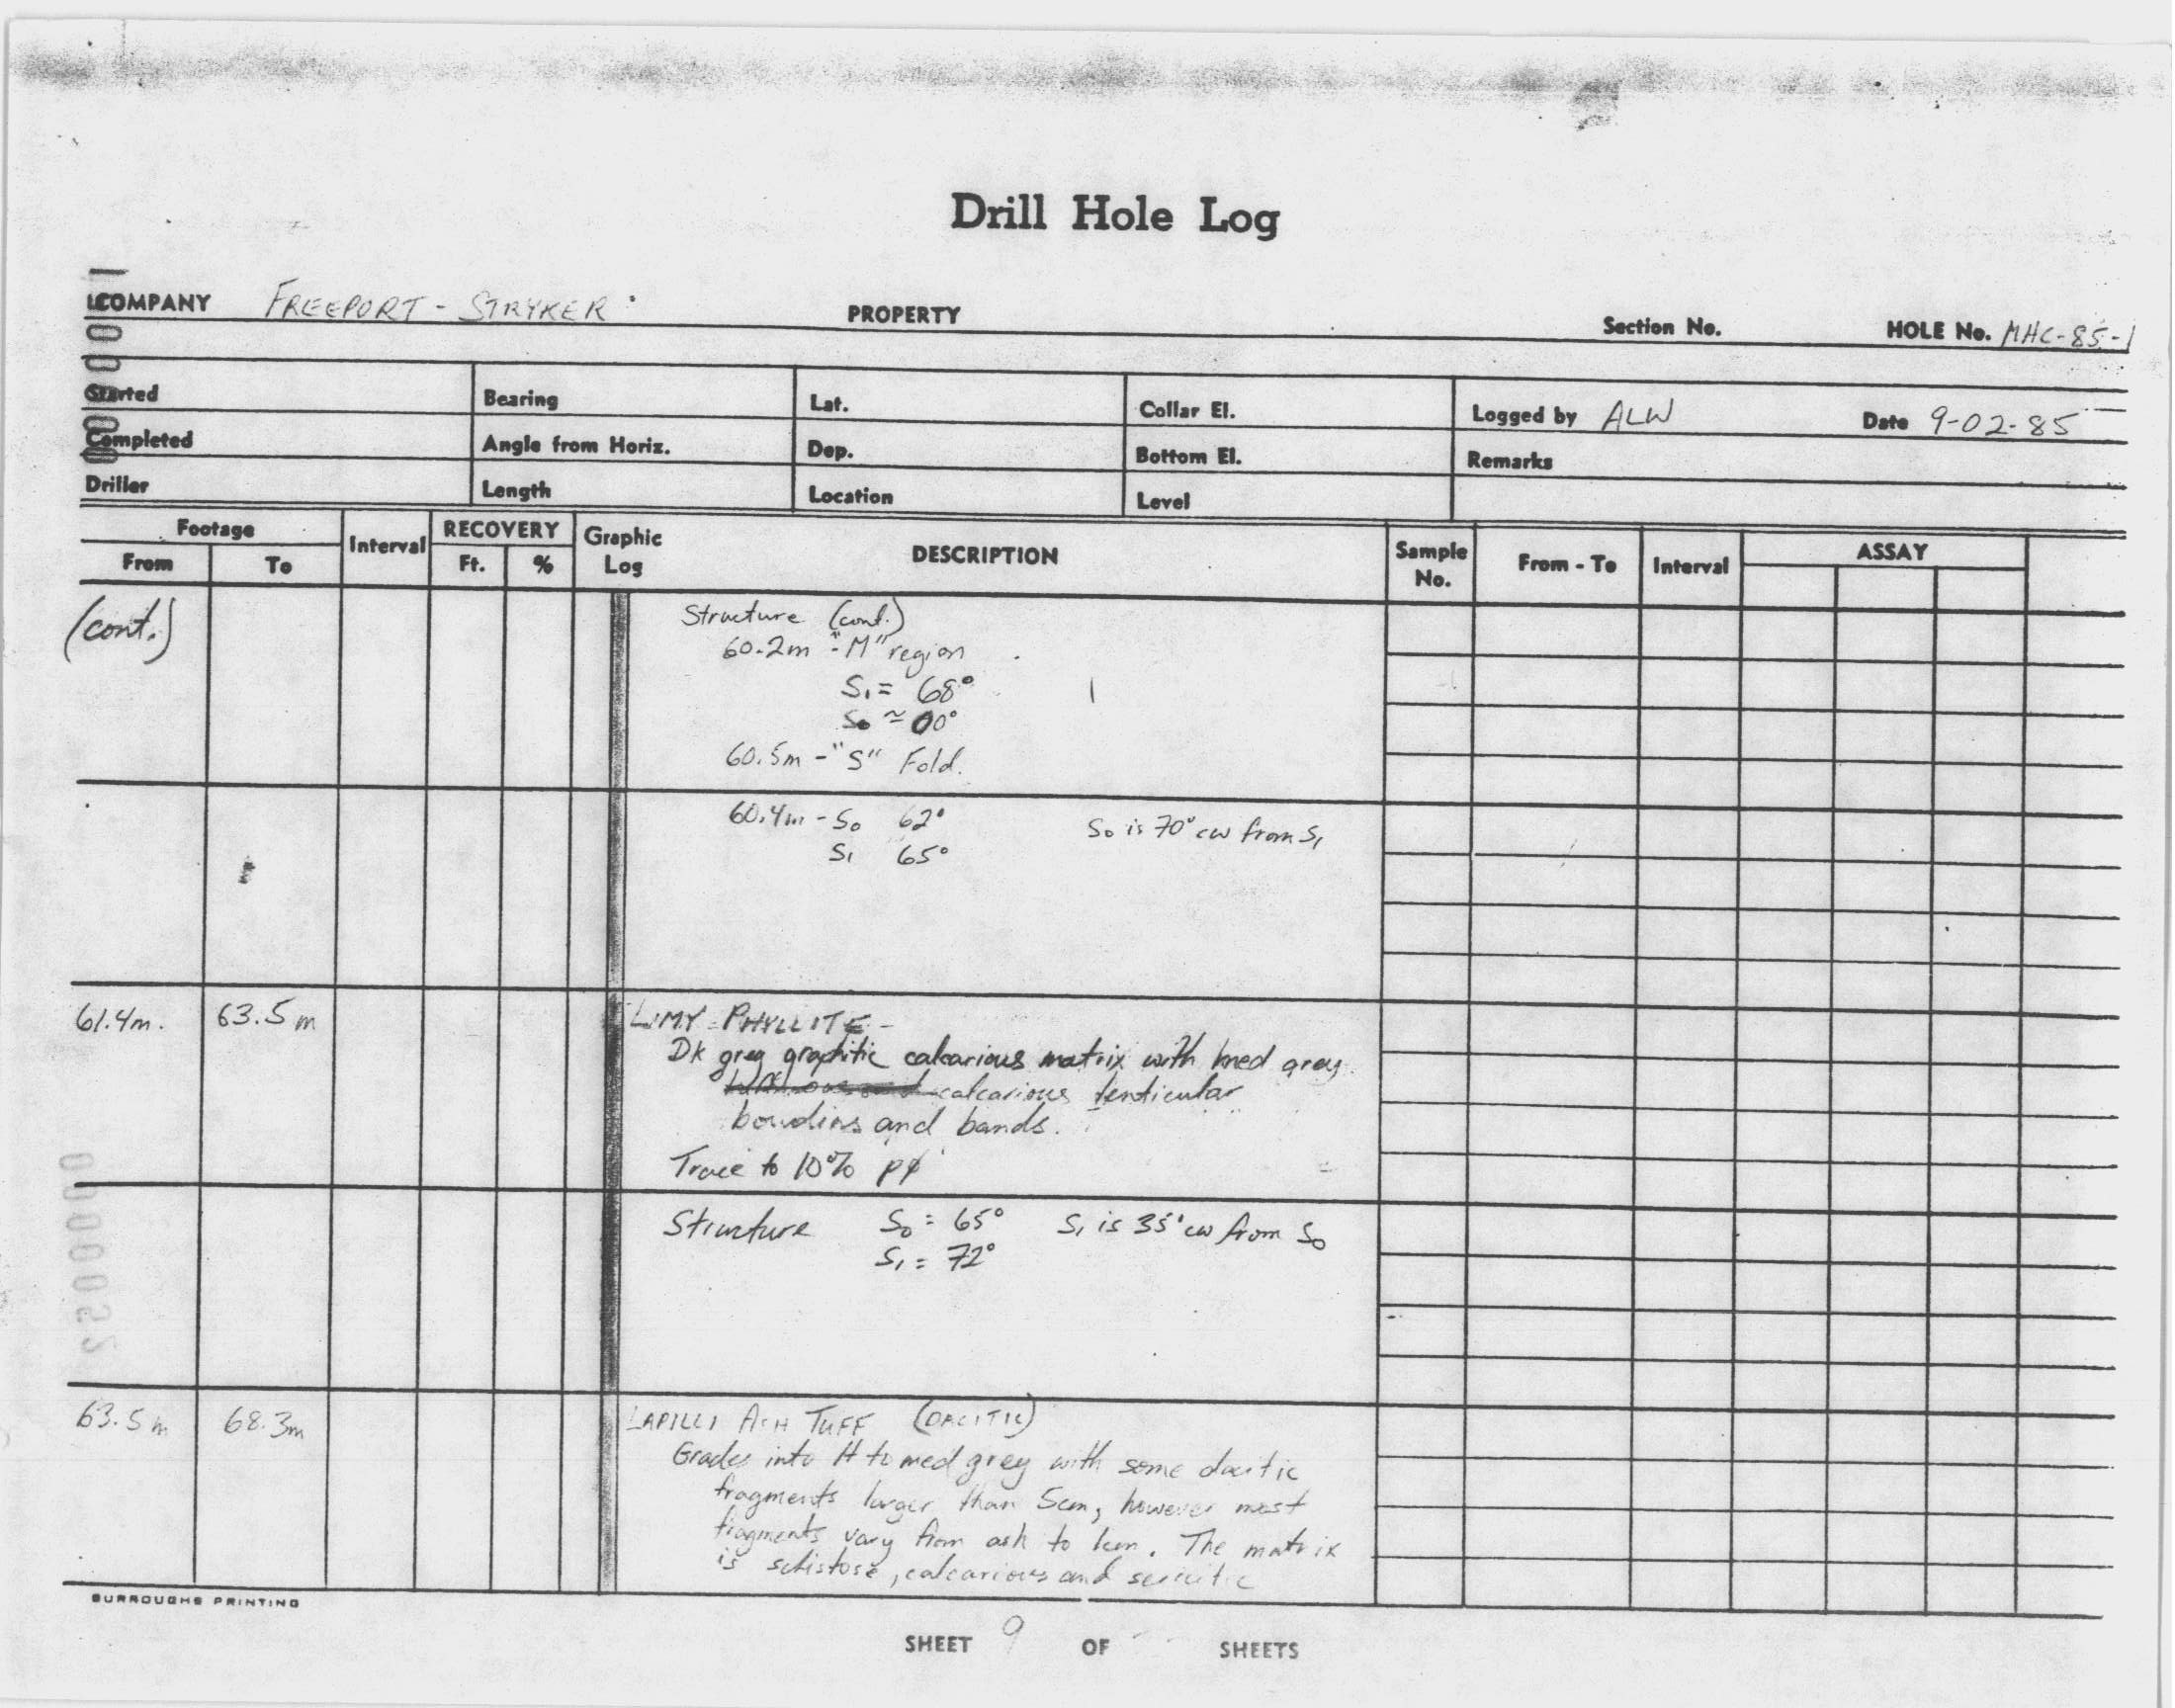 Drill Hole Log
COMPANY FREEPORT - STRYKER PROPERTY Section No. HOLE No. MHC-85-1
Started Bearing Lat. Collar El. Logged by ALW Date 9-02-85
Completed Angle from Horiz. Dep. Bottom El. Remarks
Driller Length Location Level
Footage Interval RECOVERY Graphic Log DESCRIPTION Sample No. From - To Interval ASSAY
From To Ft. %
(cont.) Structure (cont.)
60.2m - "M" region
S1 = 68°
So ≃ 00°
60.5m - "S" Fold.
60.4m - So 62° So is 70° cw from S1
S1 65°
61.4m. 63.5m LIMY PHYLLITE -
Dk grey graphitic calcarious matrix with med grey
calcarious lenticular
boudins and bands.
Trace to 10%
Structure So = 65° S1 is 35° cw from So
S1 = 72°
63.5m 68.3m LAPILLI ASH TUFF (DACITIC)
Grades into lt to med grey with some dacitic
fragments larger than 5cm, however most
fragments vary from ash to 1cm. The matrix
is schistose, calcarious and sericitic
BURROUGHS PRINTING
SHEET 9 OF SHEETS
000052